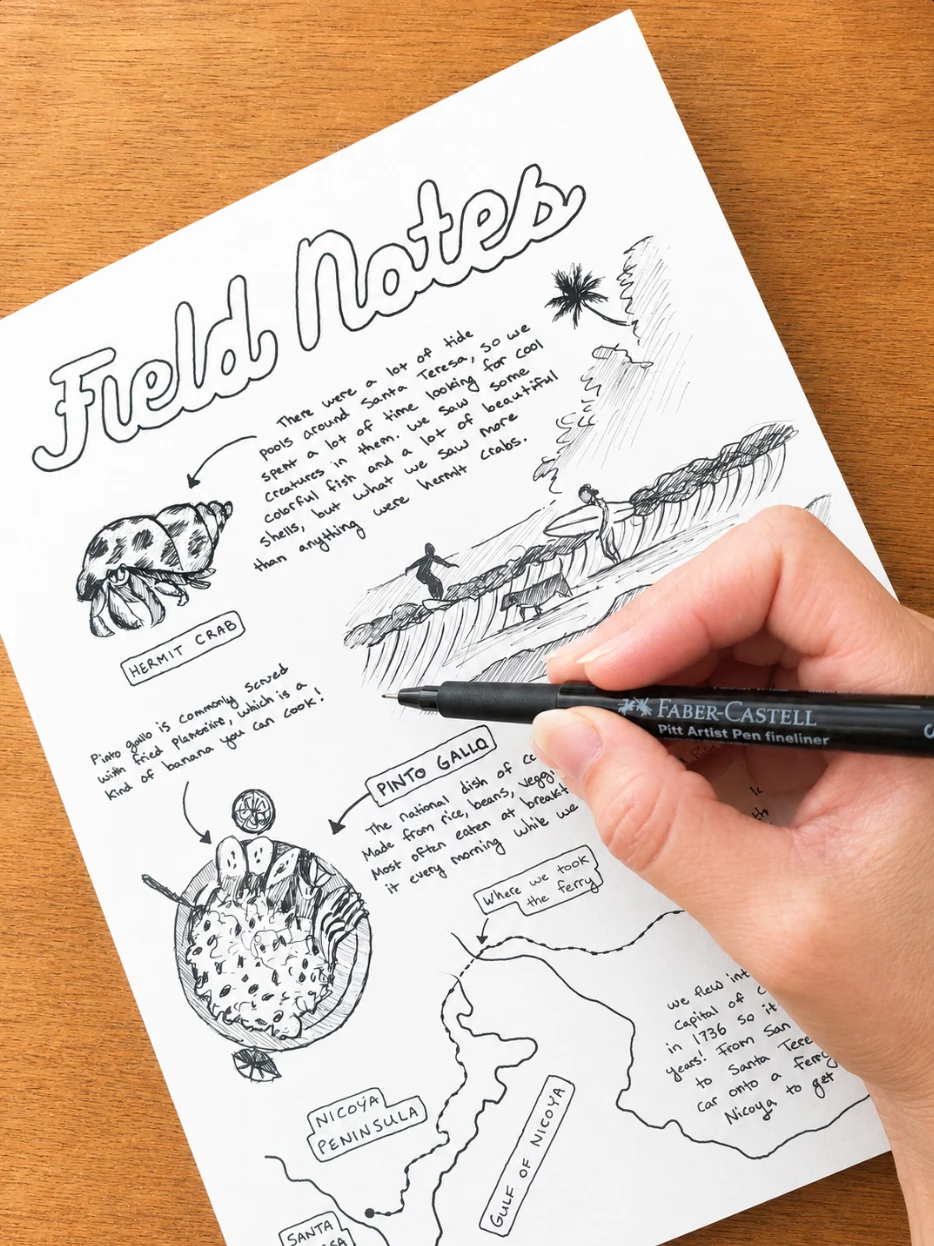 Field Notes
There were a lot of tide
pools around Santa Teresa, so we
spent a lot of time looking for cool
creatures in them. We saw some
colorful fish and a lot of beautiful
shells, but what we saw more
than anything were hermit crabs.
HERMIT CRAB
Pinto gallo is commonly served
with fried plantains, which is a
kind of banana you can cook!
FABER-CASTELL
Pitt Artist Pen fineliner
S
PINTO GALLO
The national dish of
Made from rice, beans,
Most often eaten at
it every morning while we
Where we took
the ferry
We flew
Capital of
in 1736 so it
years! From San
to Santa
car onto a ferry
Nicoya to get
NICOYA
PENINSULA
GULF OF NICOYA
SANTA